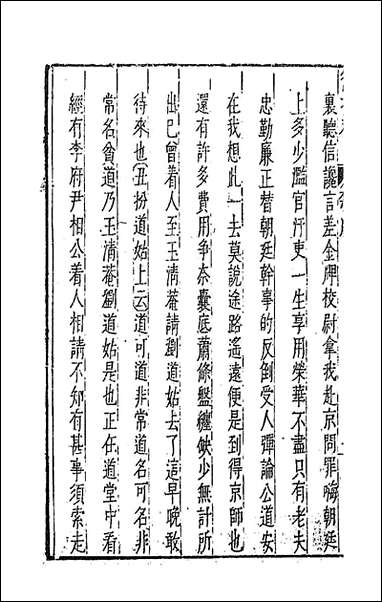 裏聽信讒言差金牌校尉拿我赴京問罪嗨朝廷
上多少濫官汙吏一生享用榮華不盡只有老夫
忠勤廉正替朝廷幹事的反倒受人彈論公道安
在我想此一去莫說途路遙遠便是到得京師也
還有許多費用爭奈囊底蕭條盤纏缺少無計所
出已曾着人至玉清菴請劉道姑去了這早晚敢
待來也丑扮道姑上云道可道非常道名可名非
常名貧道乃玉清菴劉道姑是也正在道堂中看
經有李府尹相公着人相請不知有甚事須索走